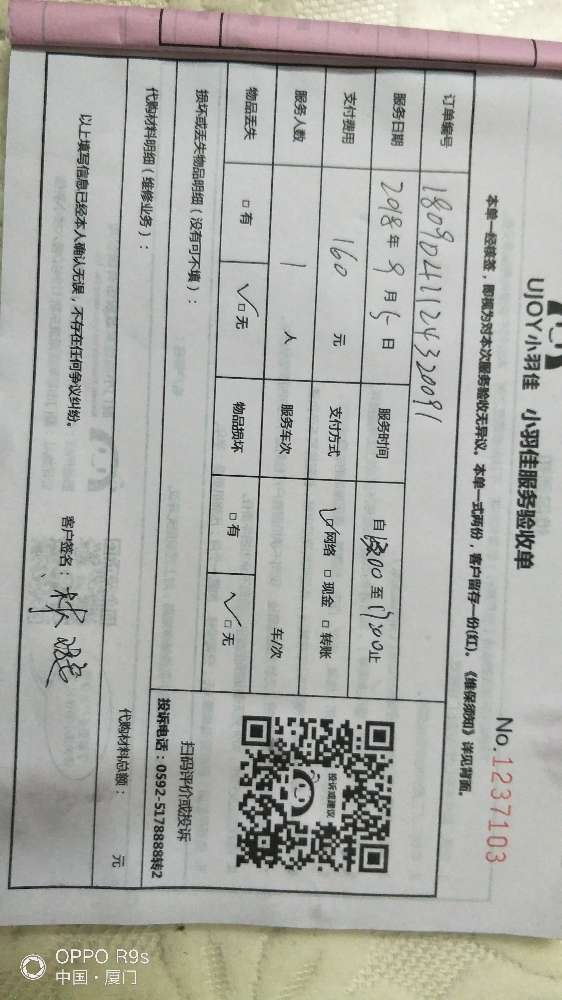 UJOY小羽佳 小羽佳服务验收单
No.1237103
本单一经核签，即视为对本次服务验收无异议。本单一式两份，客户留存一份(红)。《维保须知》详见背面。
订单编号 1809041124320091
服务日期 2018年9月5日 服务时间 自 00至17:00止
支付费用 160元 支付方式 ☑网络 □现金 □转账
服务人数 1人 服务车次 车/次
物品丢失 □有 ☑无 物品损坏 □有 ☑无
损坏或丢失物品明细（没有可不填）：
投诉或建议
扫码评价或投诉
投诉电话：0592-5178888转2
代购材料明细（维修业务）：
代购材料总额： 元
以上填写信息已经本人确认无误，不存在任何争议纠纷。 客户签名：林
OPPO R9s
中国·厦门